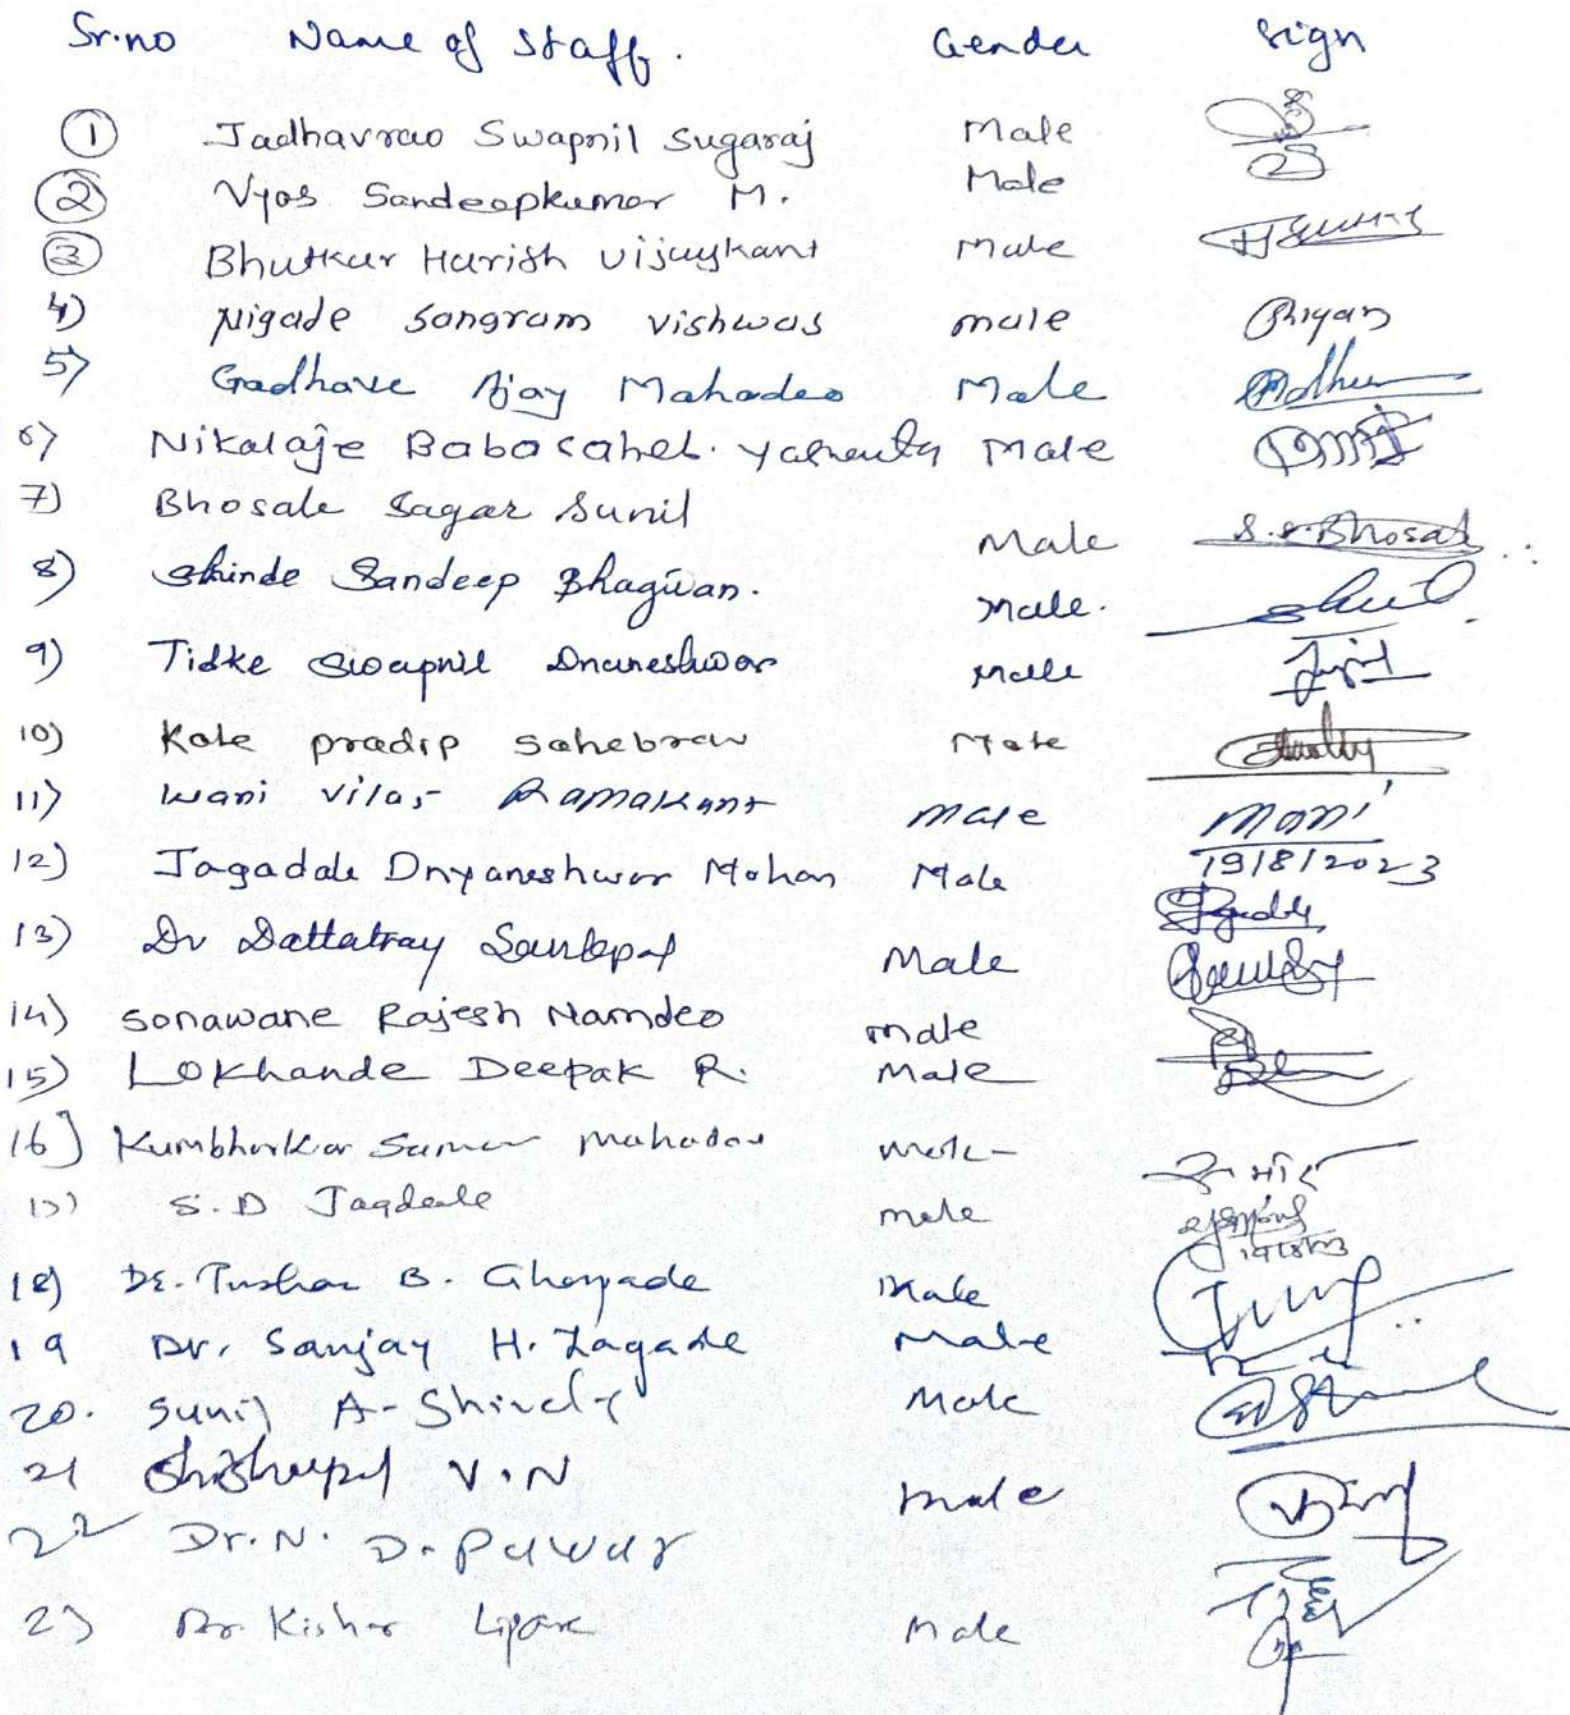 Sr.no Name of Staff. Gender Sign
1 Jadhavrao Swapnil Sugaraj Male
2 Vyas Sandeepkumar M. Male
3 Bhutkar Harish Vijaykant Male
4) Nigade Sangram Vishwas male
5) Gadhave Ajay Mahadeo Male
6) Nikalaje Babasaheb. Male
7) Bhosale Sagar Sunil Male S.S.Bhosale
8) Shinde Sandeep Bhagwan. Male.
9) Tidke Swapnil Dnaneshwar Male
10) Kale pradip sahebrav Male
11) Wani Vilas Ramakant male
19/8/2023
12) Jagadale Dnyaneshwar Mohan Male
13) Dr Dattatray Male
14) Sonawane Rajesh Namdeo male
15) Lokhande Deepak R. Male
16) Kumbharkar Mahadav Male
17) S.D Jagdale male
18) Dr. Tushar B. Ghorpade Male
19 Dr. Sanjay H. Zagade Male
20. Sunil A- Male
21 Shishupal V.N male
22 Dr. N. D. Pawar
23 Dr. Kishor Male